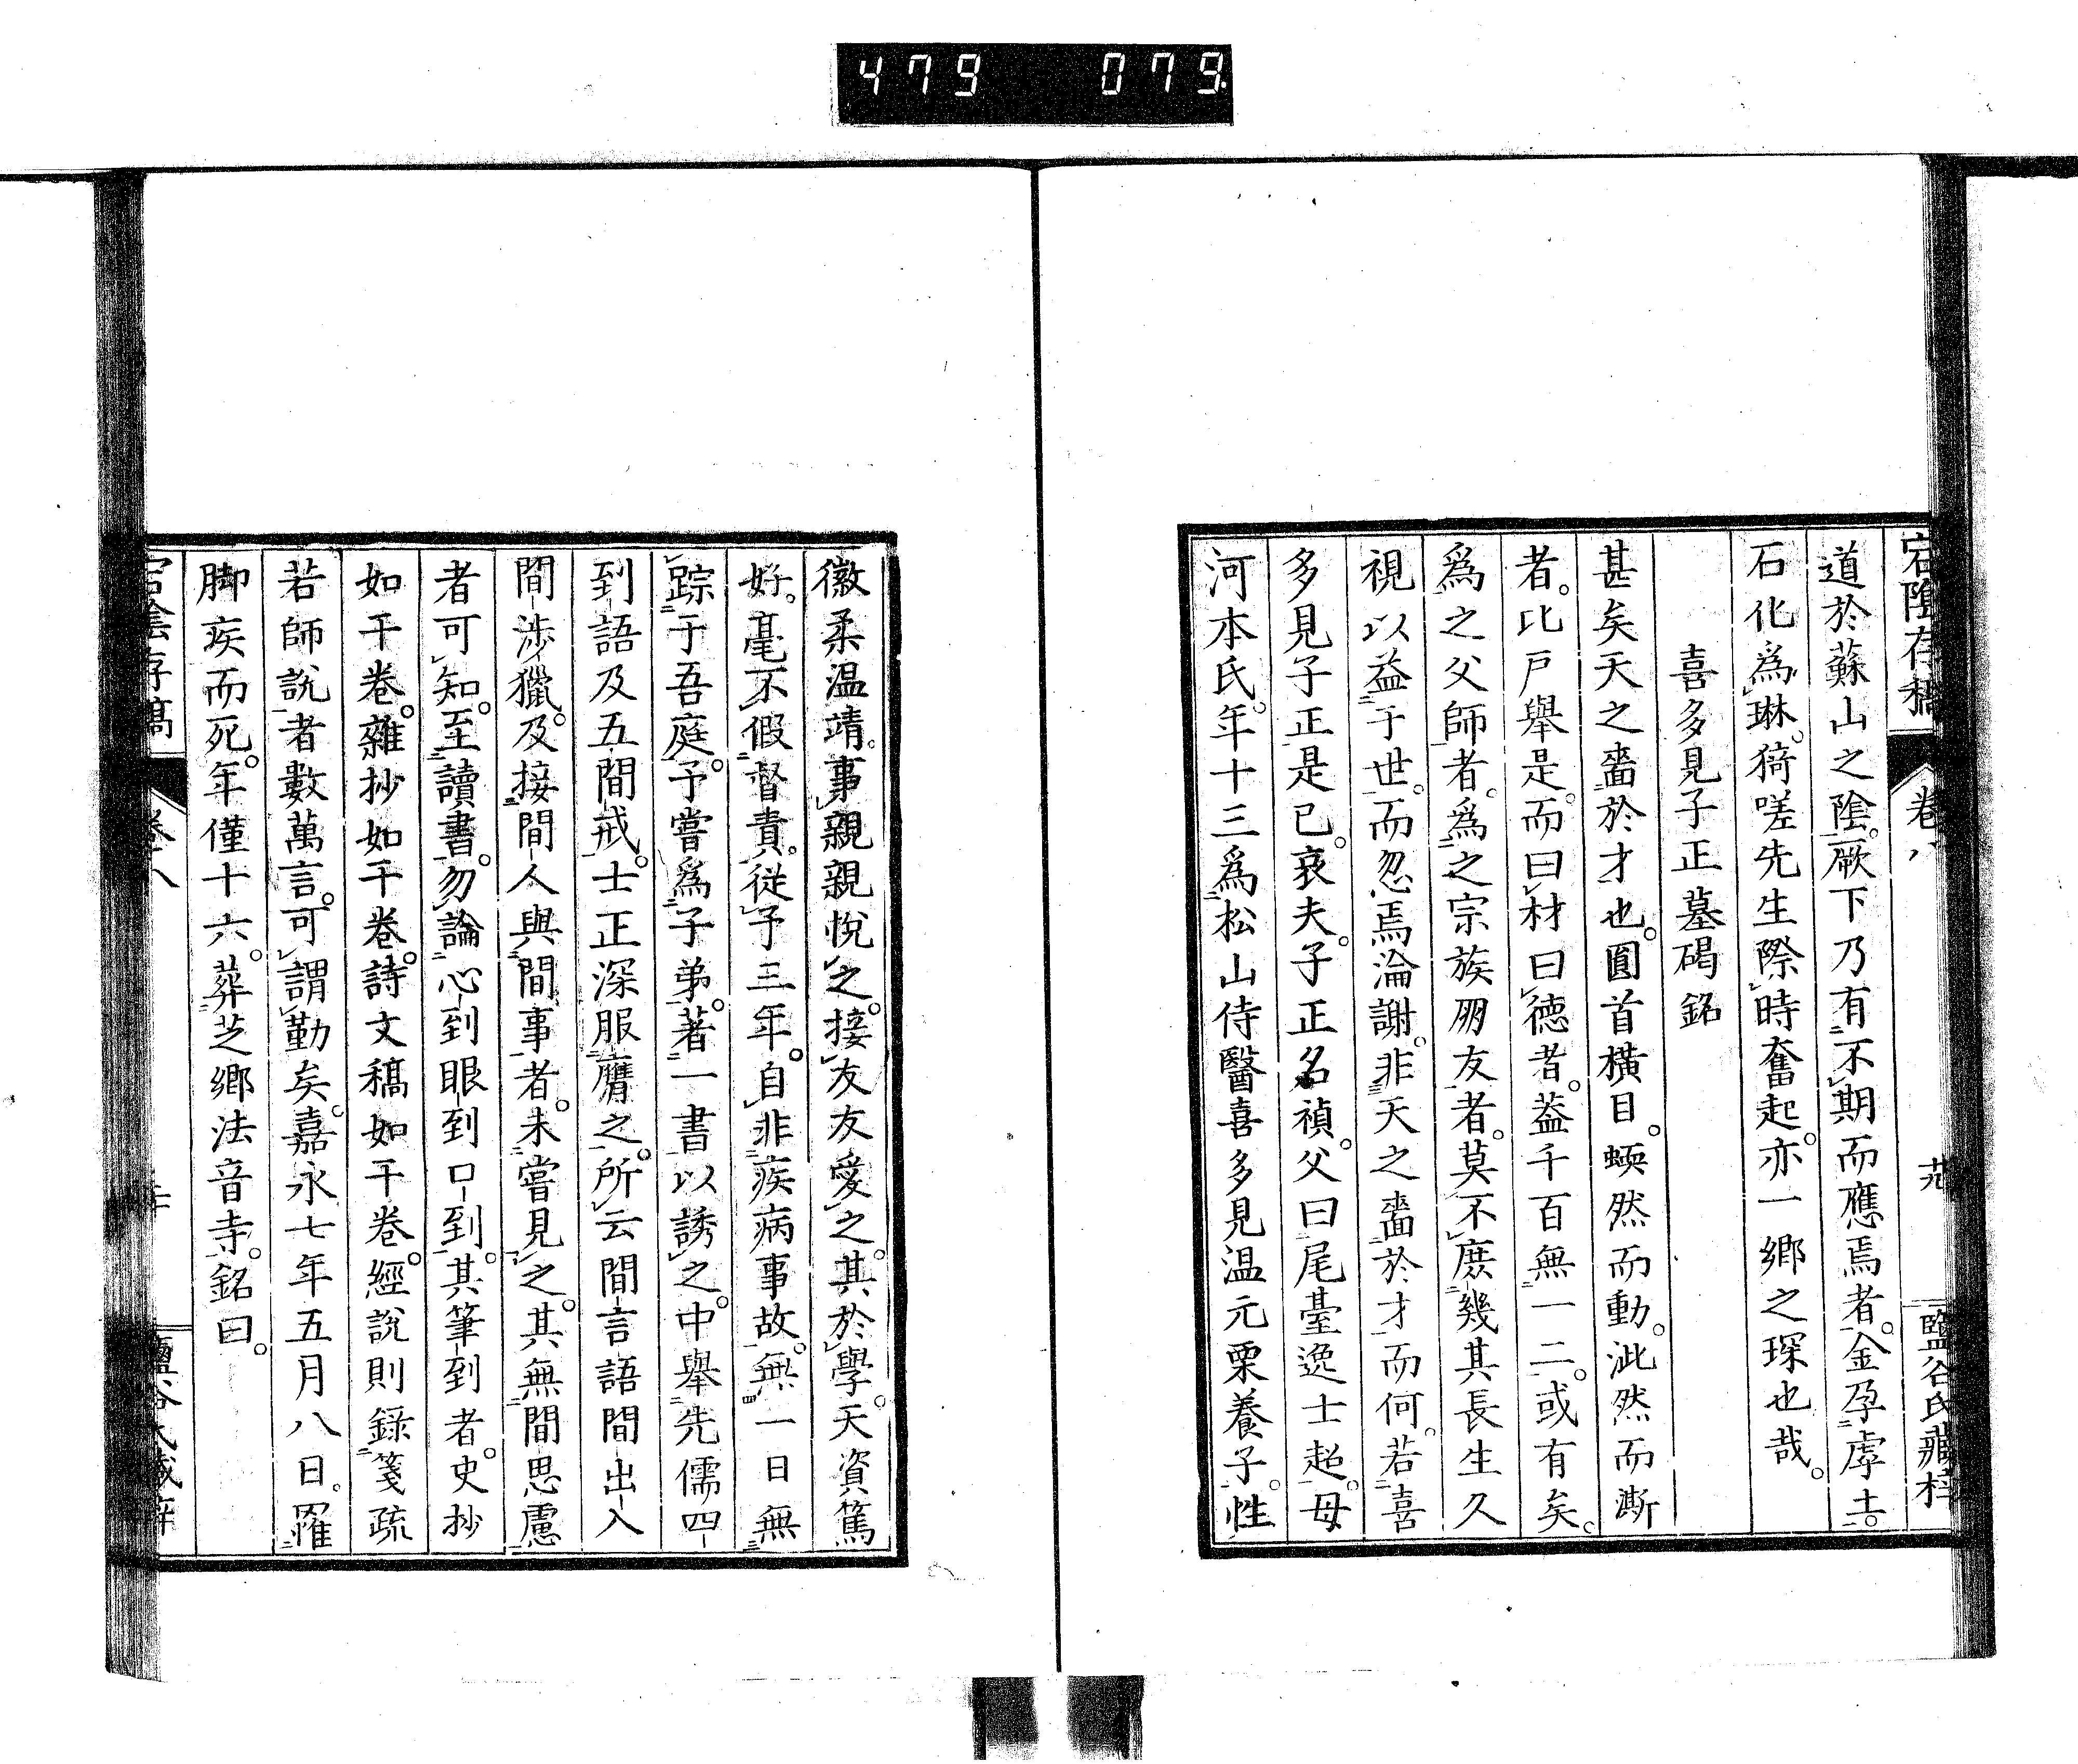 479 079
宕陰存稿 卷八 廿九 鹽谷氏藏梓
道於蘇山之陰。厥下乃有不期而應焉者。金孕虖土。
石化爲琳。猗嗟先生際時奮起。亦一鄉之琛也哉。
喜多見子正墓碣銘
甚矣天之嗇於才也。圓首橫目。蝡然而動。泚然而澌
者。比戶舉是。而曰材曰德者。蓋千百無一二。或有矣。
爲之父師者。爲之宗族朋友者。莫不庶幾其長生久
視以益于世。而忽焉淪謝。非天之嗇於才而何。若喜
多見子正是已。哀夫。子正名禎。父曰尾臺逸士超。母
河本氏。年十三爲松山侍醫喜多見温元栗養子。性
徽柔温靖。事親親悅之。接友友愛之。其於學。天資篤
好。毫不假督責。從予三年。自非疾病事故。無一日無
踪于吾庭。予嘗爲子弟。著一書以誘之。中舉先儒四
到語及五間戒。士正深服膺之。所云間言語間出入
間涉獵。及接間人與間事者。未嘗見之。其無間思慮
者可知。至讀書。勿論心到眼到口到。其筆到者。史抄
如干卷。雜抄如干卷。詩文稿如干卷。經說則錄箋疏
若師說者數萬言。可謂勤矣。嘉永七年五月八日。罹
脚疾而死。年僅十六。葬芝鄉法音寺。銘曰。
宕陰存稿 卷八 鹽谷氏藏梓